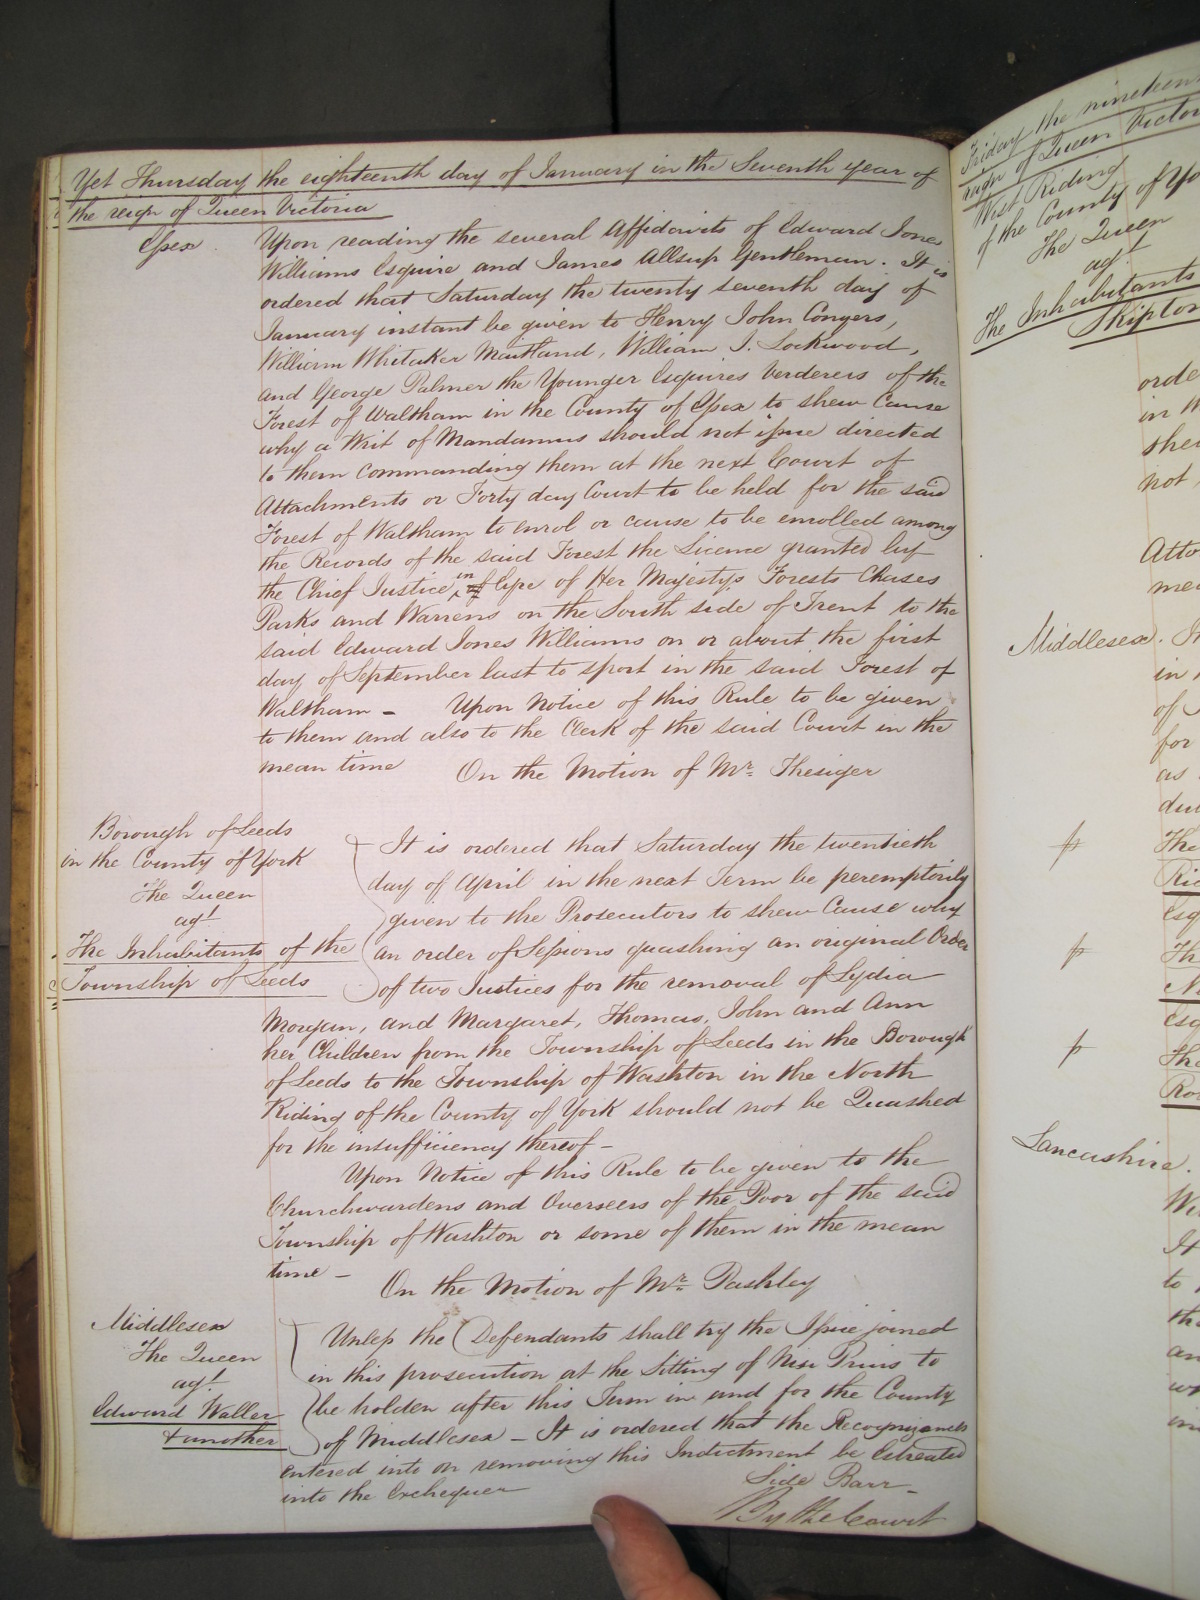 Yet Thursday the eighteenth day of January in the Seventh year of
the reign of Queen Victoria
Essex. Upon reading the several Affidavits of Edward Jones
Williams Esquire and James Allsup Gentleman. It is
ordered that Saturday the twenty seventh day of
January instant be given to Henry John Conyers,
William Whitaker Maitland, William J. Lockwood,
and George Palmer the Younger Esquires Verderers of the
Forest of Waltham in the County of Essex to shew Cause
why a Writ of Mandamus should not issue directed
to them commanding them at the next Court of
Attachments or Forty day Court to be held for the said
Forest of Waltham to enrol or cause to be enrolled among
the Records of the said Forest the Licence granted by
the Chief Justice in Eyre of Her Majestys Forests Chases
Parks and Warrens on the South side of Trent to the
said Edward Jones Williams on or about the first
day of September last to sport in the said Forest of
Waltham – Upon Notice of this Rule to be given
to them and also to the Clerk of the said Court in the
mean time
On the Motion of Mr. Thesiger
Borough of Leeds
in the County of York
The Queen
agt
The Inhabitants of the
Township of Leeds
It is ordered that Saturday the twentieth
day of April in the next Term be peremptorily
given to the Prosecutors to shew Cause why
an order of Sessions quashing an original Order
of two Justices for the removal of Lydia
Morgan, and Margaret, Thomas, John and Ann
her Children from the Township of Leeds in the Borough
of Leeds to the Township of Washton in the North
Riding of the County of York should not be Quashed
for the insufficiency thereof –
Upon Notice of this Rule to be given to the
Churchwardens and Overseers of the Poor of the said
Township of Washton or some of them in the mean
time –
On the Motion of Mr. Pashley
Middlesex
The Queen
agt.
Edward Waller
& another
Unless the Defendants shall try the Issue joined
in this prosecution at the Sitting of Nisi Prius to
be holden after this Term in and for the County
of Middlesex – It is ordered that the Recognizances
entered into on removing this Indictment be Estreated
into the Exchequer
Side Barr –
By the Court
Friday the nineteen
reign of Queen Victor
West Riding
of the County of Yo
The Queen
agt
The Inhabitants
Skipton
orde
in W
shew
not
Atto
mea
Middlesex. I
in
of
for
as
dul
The
Ric
Esq
Th
Esq
The
Ro
Lancashire.
Wi
It
to
tha
an
in